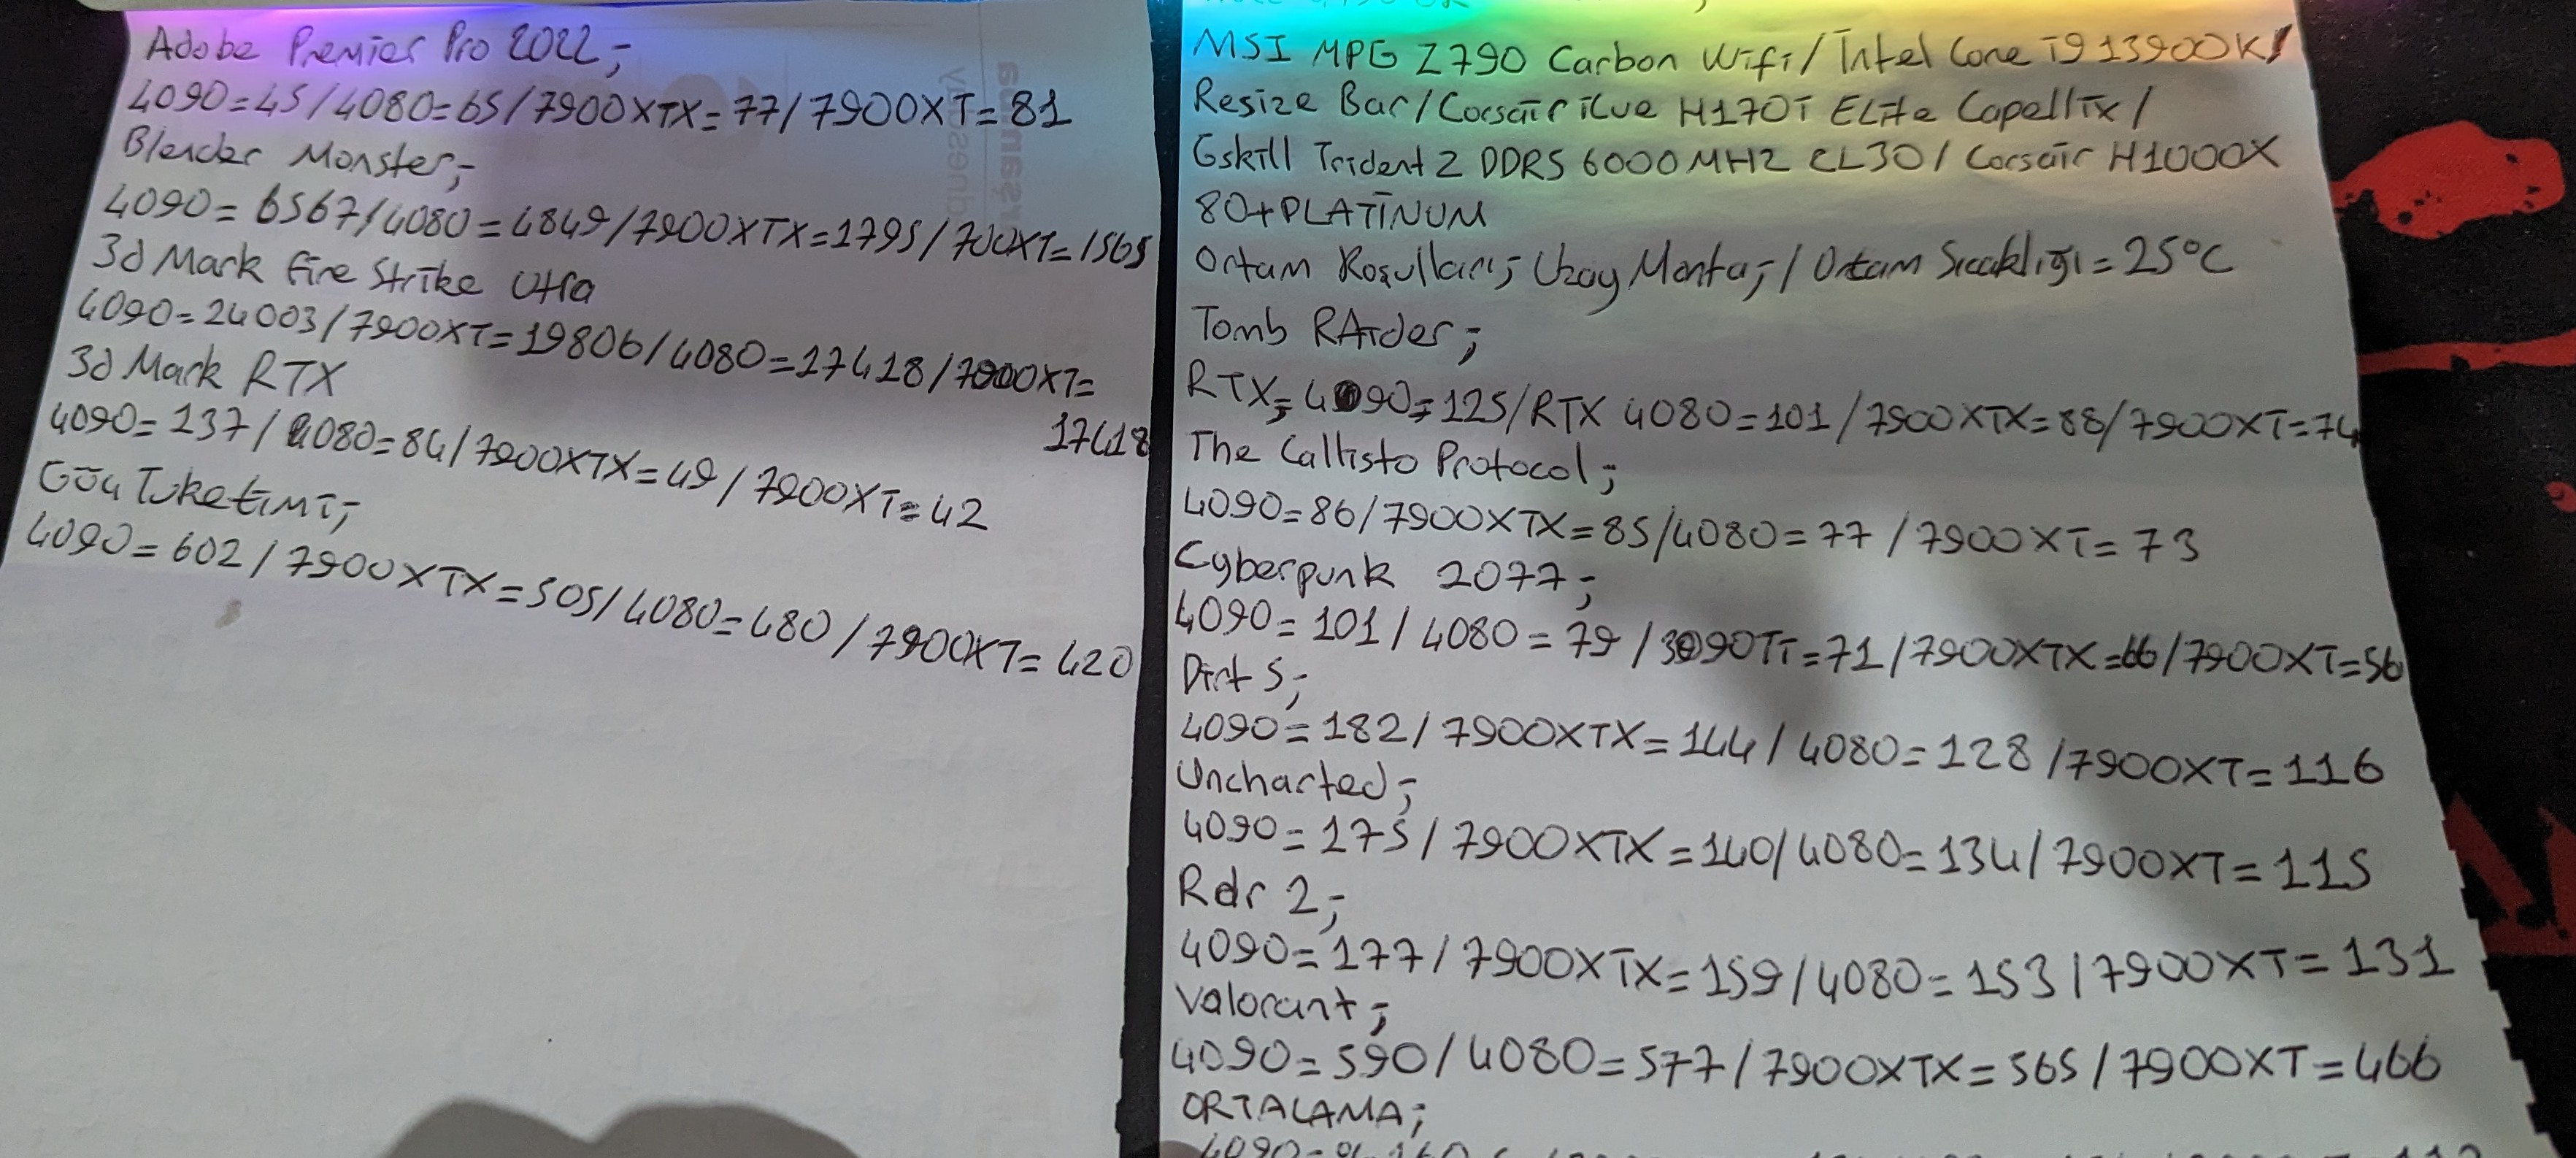 Adobe Premier Pro 2022;
4090=45/4080=65/7900XTX=77/7900XT=81
Blender Monster;
4090=6567/4080=4849/7900XTX=1795/700XT=1565
3d Mark Fire Strike Ultra
4090=24003/7900XT=19806/4080=17418/7900XT=
17418
3d Mark RTX
4090=137/4080=84/7900XTX=49/7900XT=42
Güç Tüketimi;
4090=602/7900XTX=505/4080=480/7900XT=420
MSI MPG Z790 Carbon Wifi/İntel Core i9 13900K/
Resize Bar/Corsair iCue H170i ELite Capellix/
Gskill Trident Z DDR5 6000MHZ CL30/Corsair H1000X
80+PLATİNUM
Ortam Koşulları; Uzay Montaj/Ortam Sıcaklığı=25°C
Tomb RAider;
RTX;4090=125/RTX 4080=101/7900XTX=88/7900XT=74
The Callisto Protocol;
4090=86/7900XTX=85/4080=77/7900XT=73
Cyberpunk 2077;
4090=101/4080=79/3090Ti=71/7900XTX=66/7900XT=56
Dirt 5;
4090=182/7900XTX=144/4080=128/7900XT=116
Uncharted;
4090=175/7900XTX=140/4080=134/7900XT=115
Rdr 2;
4090=177/7900XTX=159/4080=153/7900XT=131
Valorant;
4090=590/4080=577/7900XTX=565/7900XT=466
ORTALAMA;